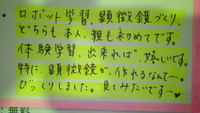 ロボット学習、顕微鏡づくり、
どちらも本人、親も初めてです。
体験学習、出来れば、嬉しいです。
特に、顕微鏡が、作れるなんて〜。
びっくりしました。見てみたいです〜♥
無料